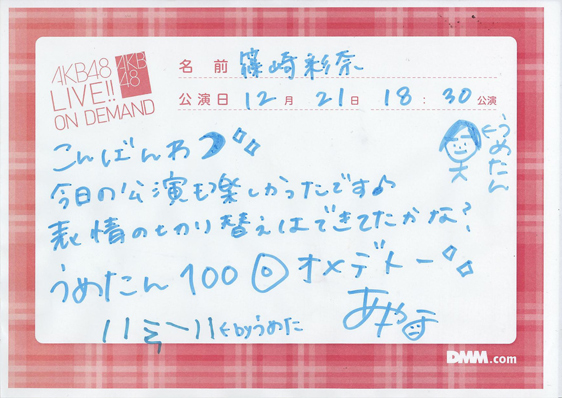 AKB48
LIVE!!
ON DEMAND
AKB
48
名前 篠崎彩奈
公演日 12月 21日 18:30公演
←うめたん
こんばんわ
今日の公演も楽しかったです♪
表情の切り替えはできてたかな?
うめたん100◎オメデトー
あやな
←byうめた
DMM.com